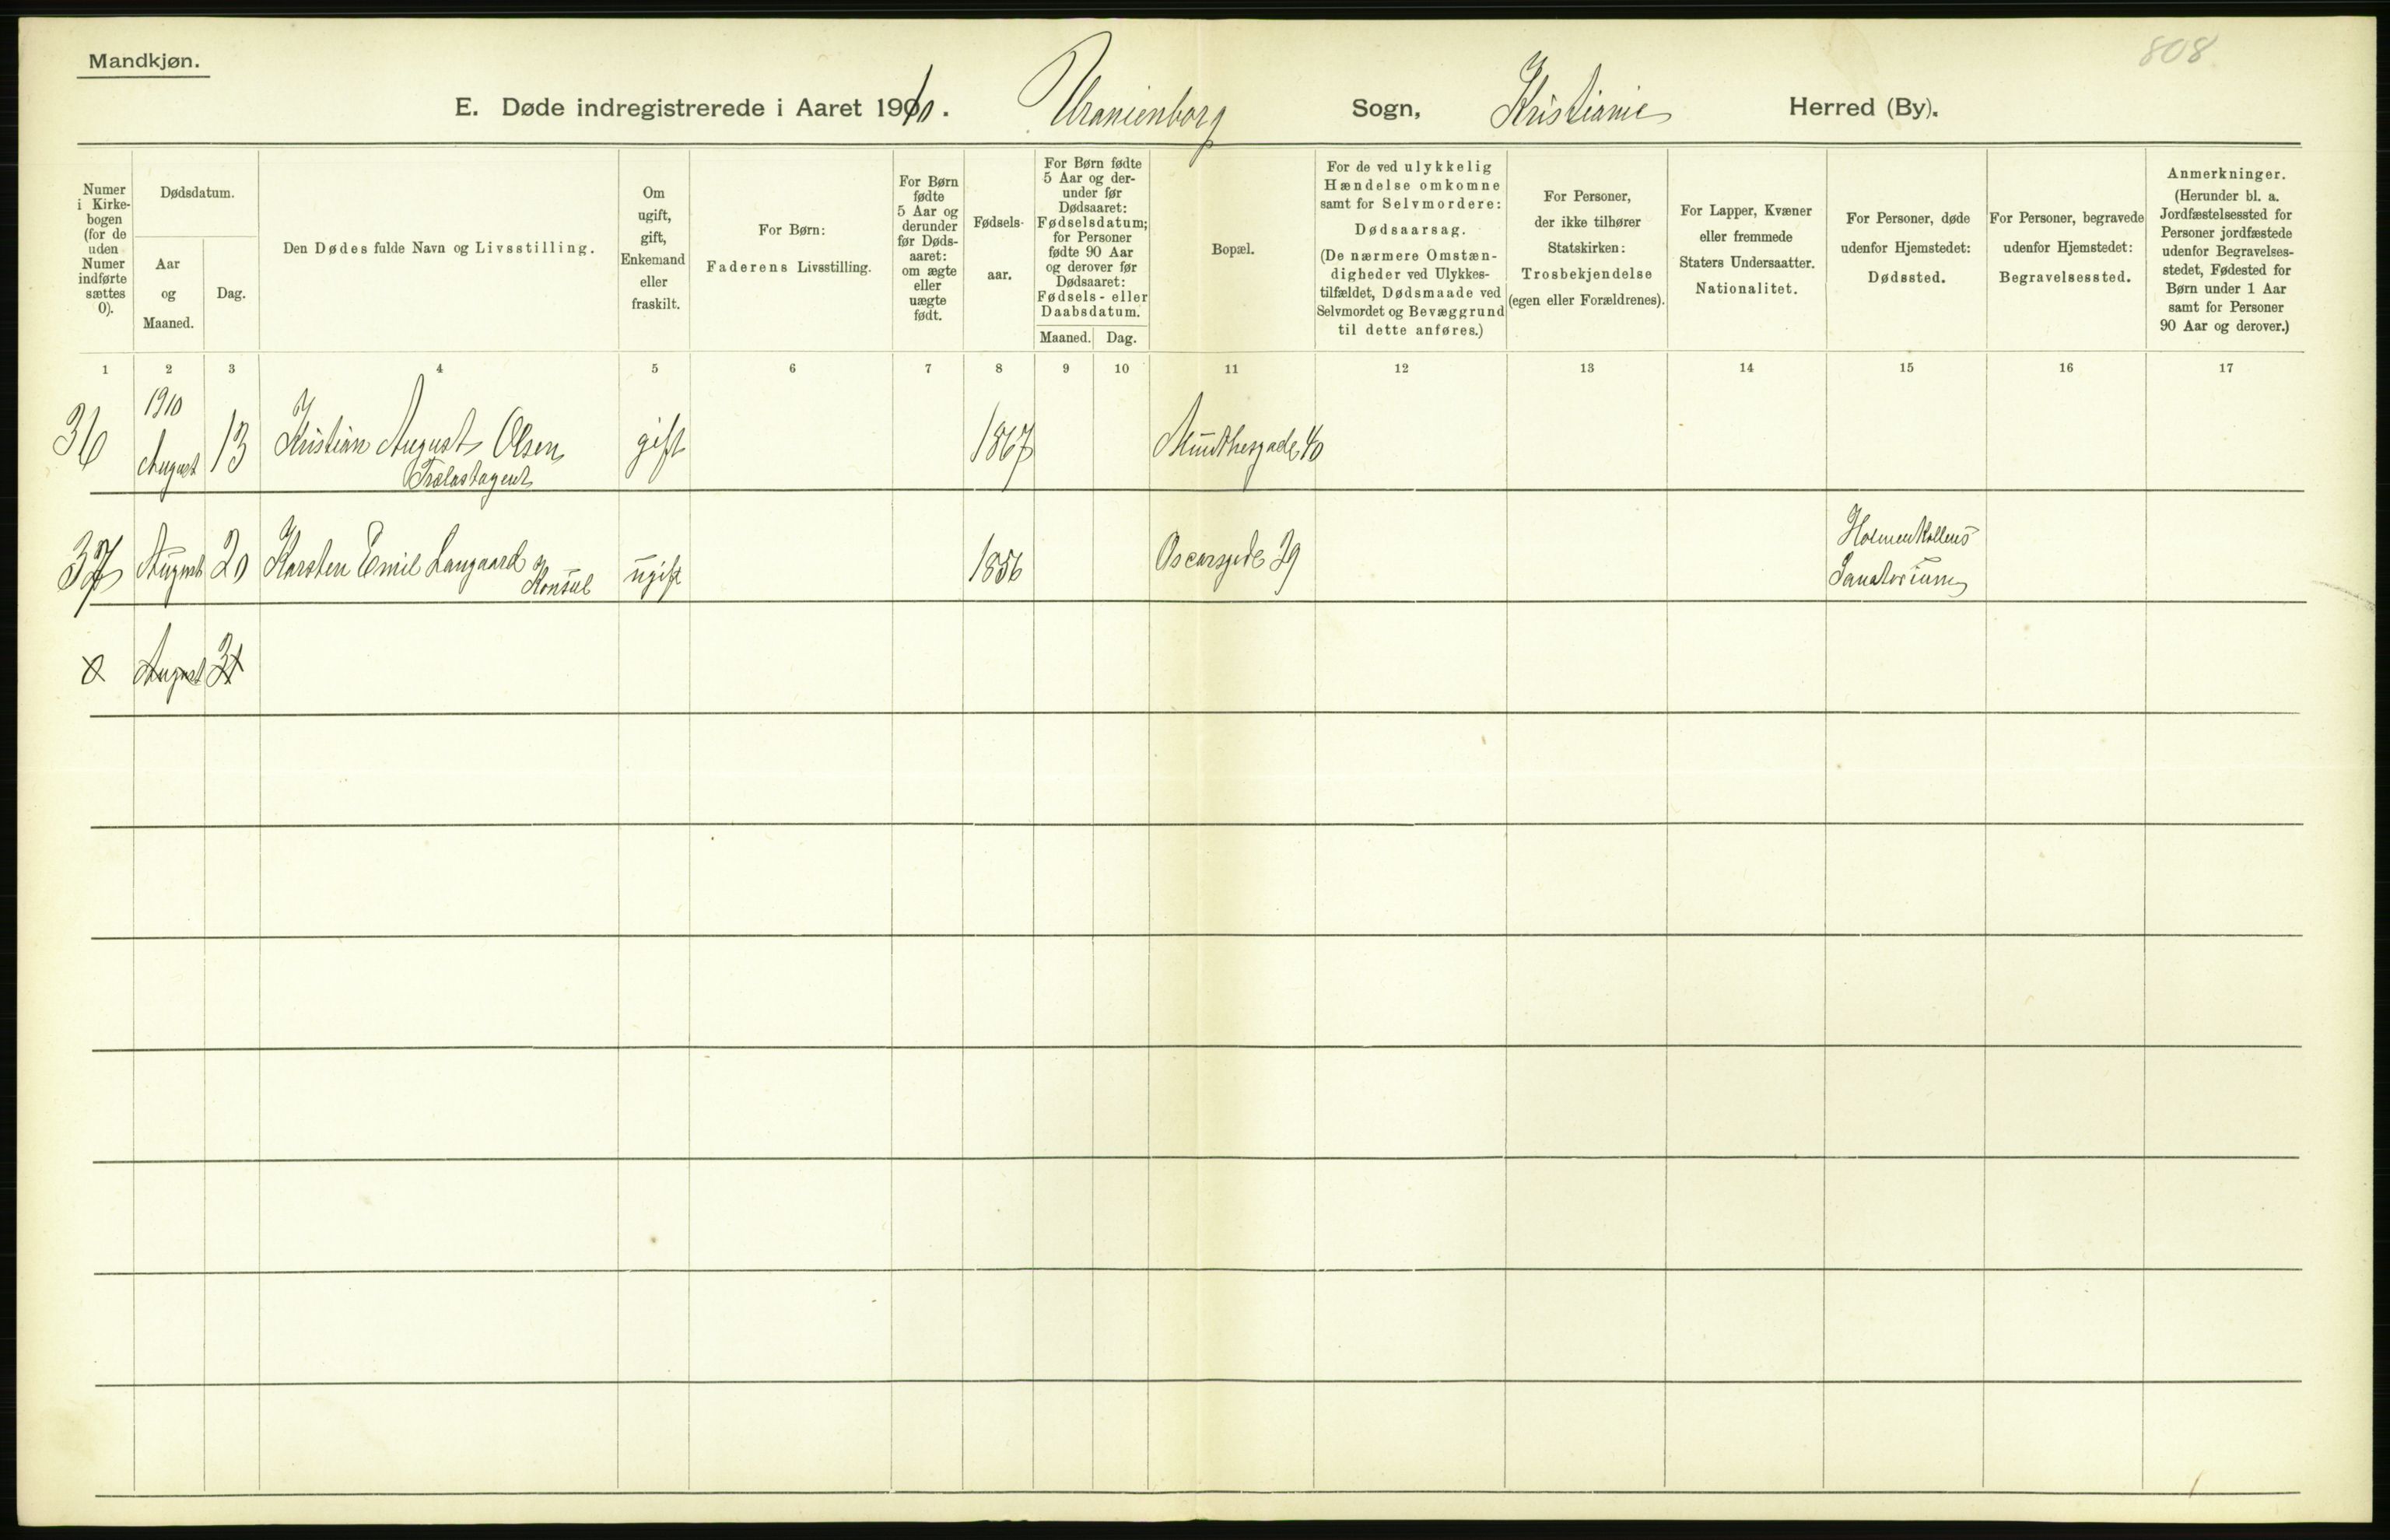 808
Mandkjøn.
E. Døde indregistrerede i Aaret 1910. Uranienborg Sogn, Kristiania Herred (By).
Numer
i Kirke-
bogen
(for de
uden
Numer
indførte
sættes
0).
Dødsdatum.
Aar
og
Maaned.
Dag.
Den Dødes fulde Navn og Livsstilling.
Om
ugift,
gift,
Enkemand
eller
fraskilt.
For Børn:
Faderens Livsstilling.
For Børn
fødte
5 Aar og
derunder
før Døds-
aaret:
om ægte
eller
uægte
født.
Fødsels-
aar.
For Børn fødte
5 Aar og der-
under før
Dødsaaret:
Fødselsdatum;
for Personer
fødte 90 Aar
og derover før
Dødsaaret:
Fødsels- eller
Daabsdatum.
Maaned. Dag.
Bopæl.
For de ved ulykkelig
Hændelse omkomne
samt for Selvmordere:
Dødsaarsag.
(De nærmere Omstæn-
digheder ved Ulykkes-
tilfældet, Dødsmaade ved
Selvmordet og Bevæggrund
til dette anføres.)
For Personer,
der ikke tilhører
Statskirken:
Trosbekjendelse
(egen eller Forældrenes).
For Lapper, Kvæner
eller fremmede
Staters Undersaatter.
Nationalitet.
For Personer, døde
udenfor Hjemstedet:
Dødssted.
For Personer, begravede
udenfor Hjemstedet:
Begravelsessted.
Anmerkninger.
(Herunder bl. a.
Jordfæstelsessted for
Personer jordfæstede
udenfor Begravelses-
stedet, Fødested for
Børn under 1 Aar
samt for Personer
90 Aar og derover.)
1 2 3 4 5 6 7 8 9 10 11 12 13 14 15 16 17
1910
36 August 13 Kristian August Olsen gift 1867 Munthesgade 40
Trælastagent
Holmenkollens
37 August 20 Karsten Emil Langaard ugift 1856 Oscarsgade 29 Sanatorium
Konsul
0 August 31